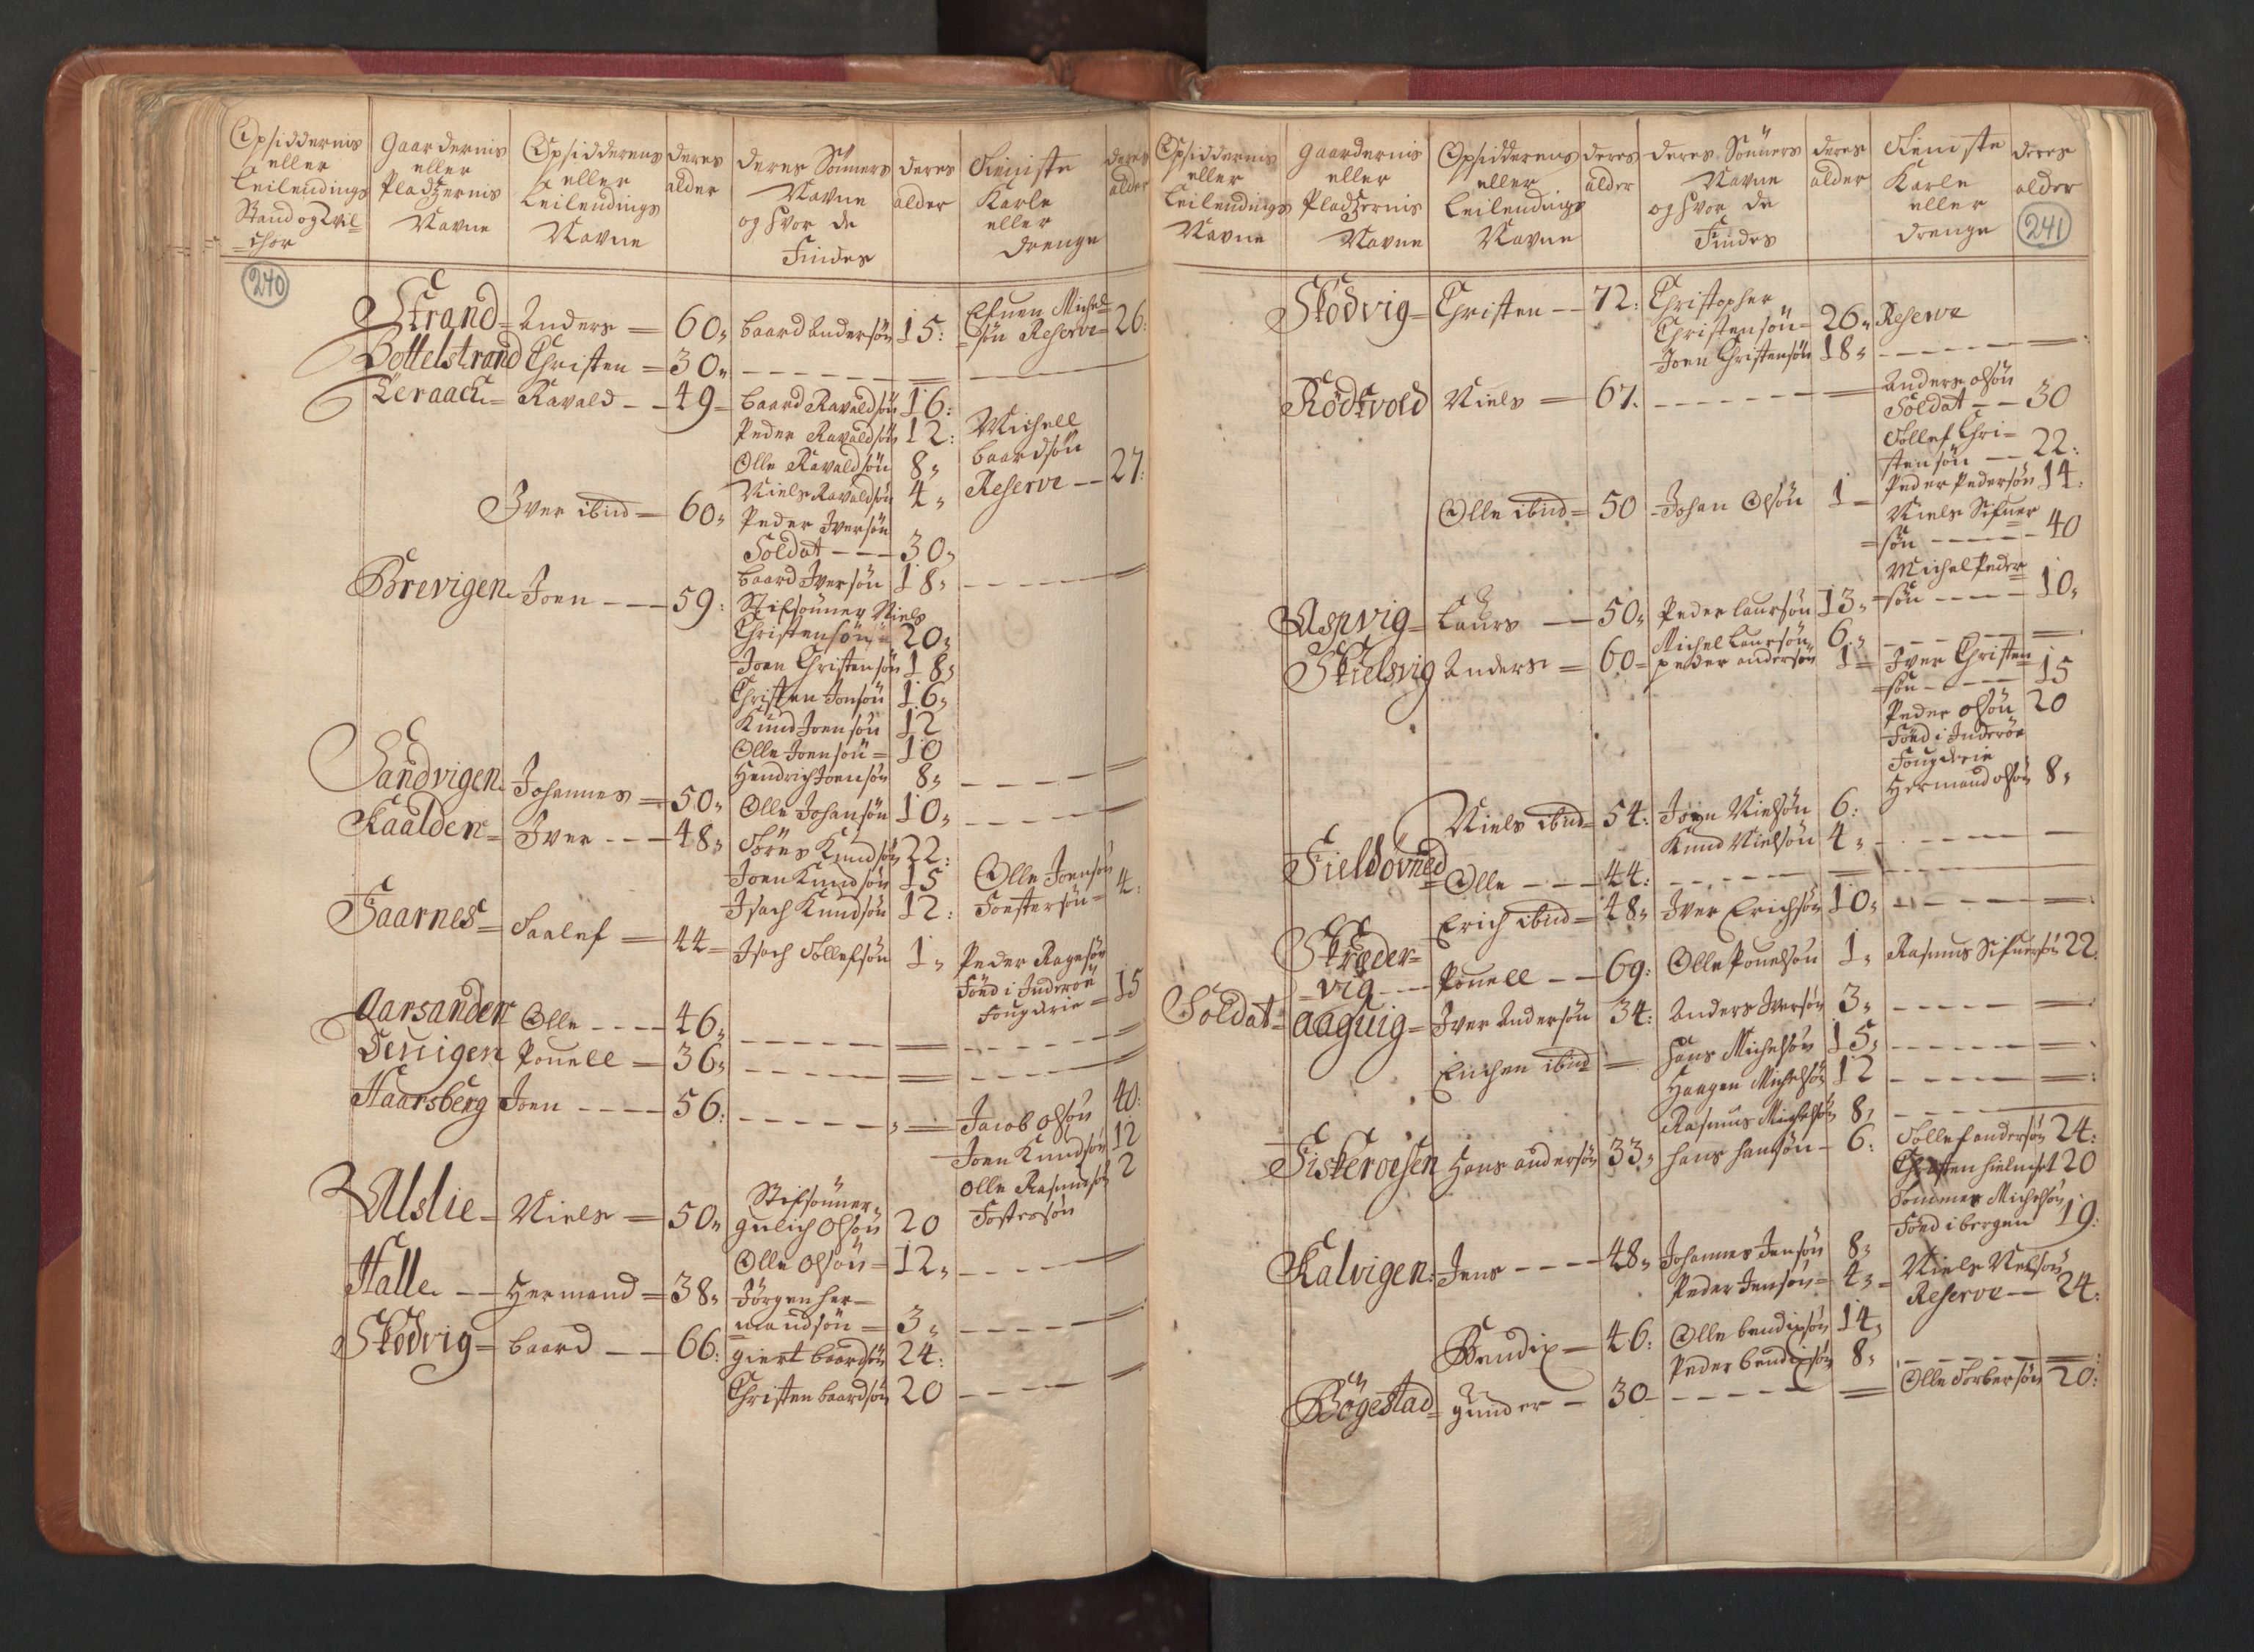 Opsiddernis eller Leilendings Stand og Vil=
=chor
Gaardernis eller Pladzernis Navne
Opsidderens eller Leilendings Navne
deres alder
deres Sönners Navne og hvor de Findes
deres alder
Tieniste Karle eller drenge
deres alder
240
Strand = Anders = 60, baard Andersön 15: Michel=
=sön Reserve = 26:
Bottelstrand Christen = 30,
Leraach = Ravald - - 49 - baard Ravaldsön 16:
Peder Ravaldsön 12: Michell
Olle Ravaldsön 8, baardsön
Niels Ravaldsön 4, Reserve - - 27:
Iver ibid = 60, Peder Iversön
Soldat - - - 30,
baard Iversön 18,
Brevigen Joen - - - 59: Stifsönner Niels
Christensön = 20,
Joen Christensön 18,
Christen Jonsön 16,
Knud Joensön 12
Olle Joensön = 10
Hendrich Joensön 8,
Sandvigen Johannes = 50, Olle Johansön 10,
Kaalden = Iver - - - 48, Sörens Knudsön 22:
Joen Knudsön 15 Olle Joensön
Isach Knudsön 12: Fostersön = 4:
Saarnes = Saalef = 44 = Isach Tollefsön 1, Peder Ragesön
Föed i Inderöe
Fougderie = 15
Aarsanden Olle - - - - 46,
Deuigen Pouell = 36,
Haarsberg Joen - - - - 56: Jacob Olsön 40:
Joen Knudsön 12
Olle Rasmusön 2
Fostersön
Ulslie = Niels = 50, Stifsönner,
gulich Olsön 20
Olle Olsön = 12,
Halle - - Hermand = 38, Jörgen her=
=mandsön = 3,
Skodvig = baard - - 66: giert baardsön 24:
Christen baardsön 20
Opsiddernis eller Leilendings Navne
gaardernis eller Pladzernis Navne
Opsidderens eller Leilendings Navne
deres alder
deres Sönners Navne og hvor de Findes
deres alder
Tieniste Karle eller drenge
deres alder
241
Skodvig = Christen - - 72: Christopher
Christensön = 26, Reserve
Joen Christensön 18,
Rödsvold Niels = 67. Anders olsön
Soldat - - 30
Tollef Chri=
stensön - - 22:
Peder Pedersön 14:
Olle ibid = 50 Johan Olsön 1 = Niels Sifuer
=sön - - - - - 40
Michel Peder
=sön - - - - 10,
Aspvig = Laurs - - 50, Peder Laursön 13,
Michel Laursön 6,
Skielsvig Anders = 60 = peder andersön 1 = Iver Christen
=sön - - - - 15
Peder olsön 20
Föed i Inderöe
Fougderie
Hermand olsön 8,
Niels ibid = 54: Joen Nielsön 6:
Knud Nielsön 4,
Fieldövned = Olle - - - 44:
Erich ibid = 48, Iver Erichsön 10,
Skreder=
=vig - - Pouell - - 69: Olle Pouelsön 1, Rasmus Sifuersön 22:
Soldat = aaguig = Iver Andersön 34: Anders Iversön 3,
Enchen ibid = hans Michelsön 15,
Haagen Michelsön 12
Rasmus Michelsön 8,
Fiskeroesen Hans andersön 33, hans hansön - 6: Tollef andersön 24:
20
Sommer Michelsön
Föed i bergen 19:
Kalvigen: Jens - - - - 48, Johannes Jensön 8,
Peder Jensön = 4, = Niels Nelsön
Reserve - - 24:
Bendix - 46: Olle bendixsön 14,
Peder bendixsön 8,
Bögestad = gunder - 30 - Olle Torbersön 20: